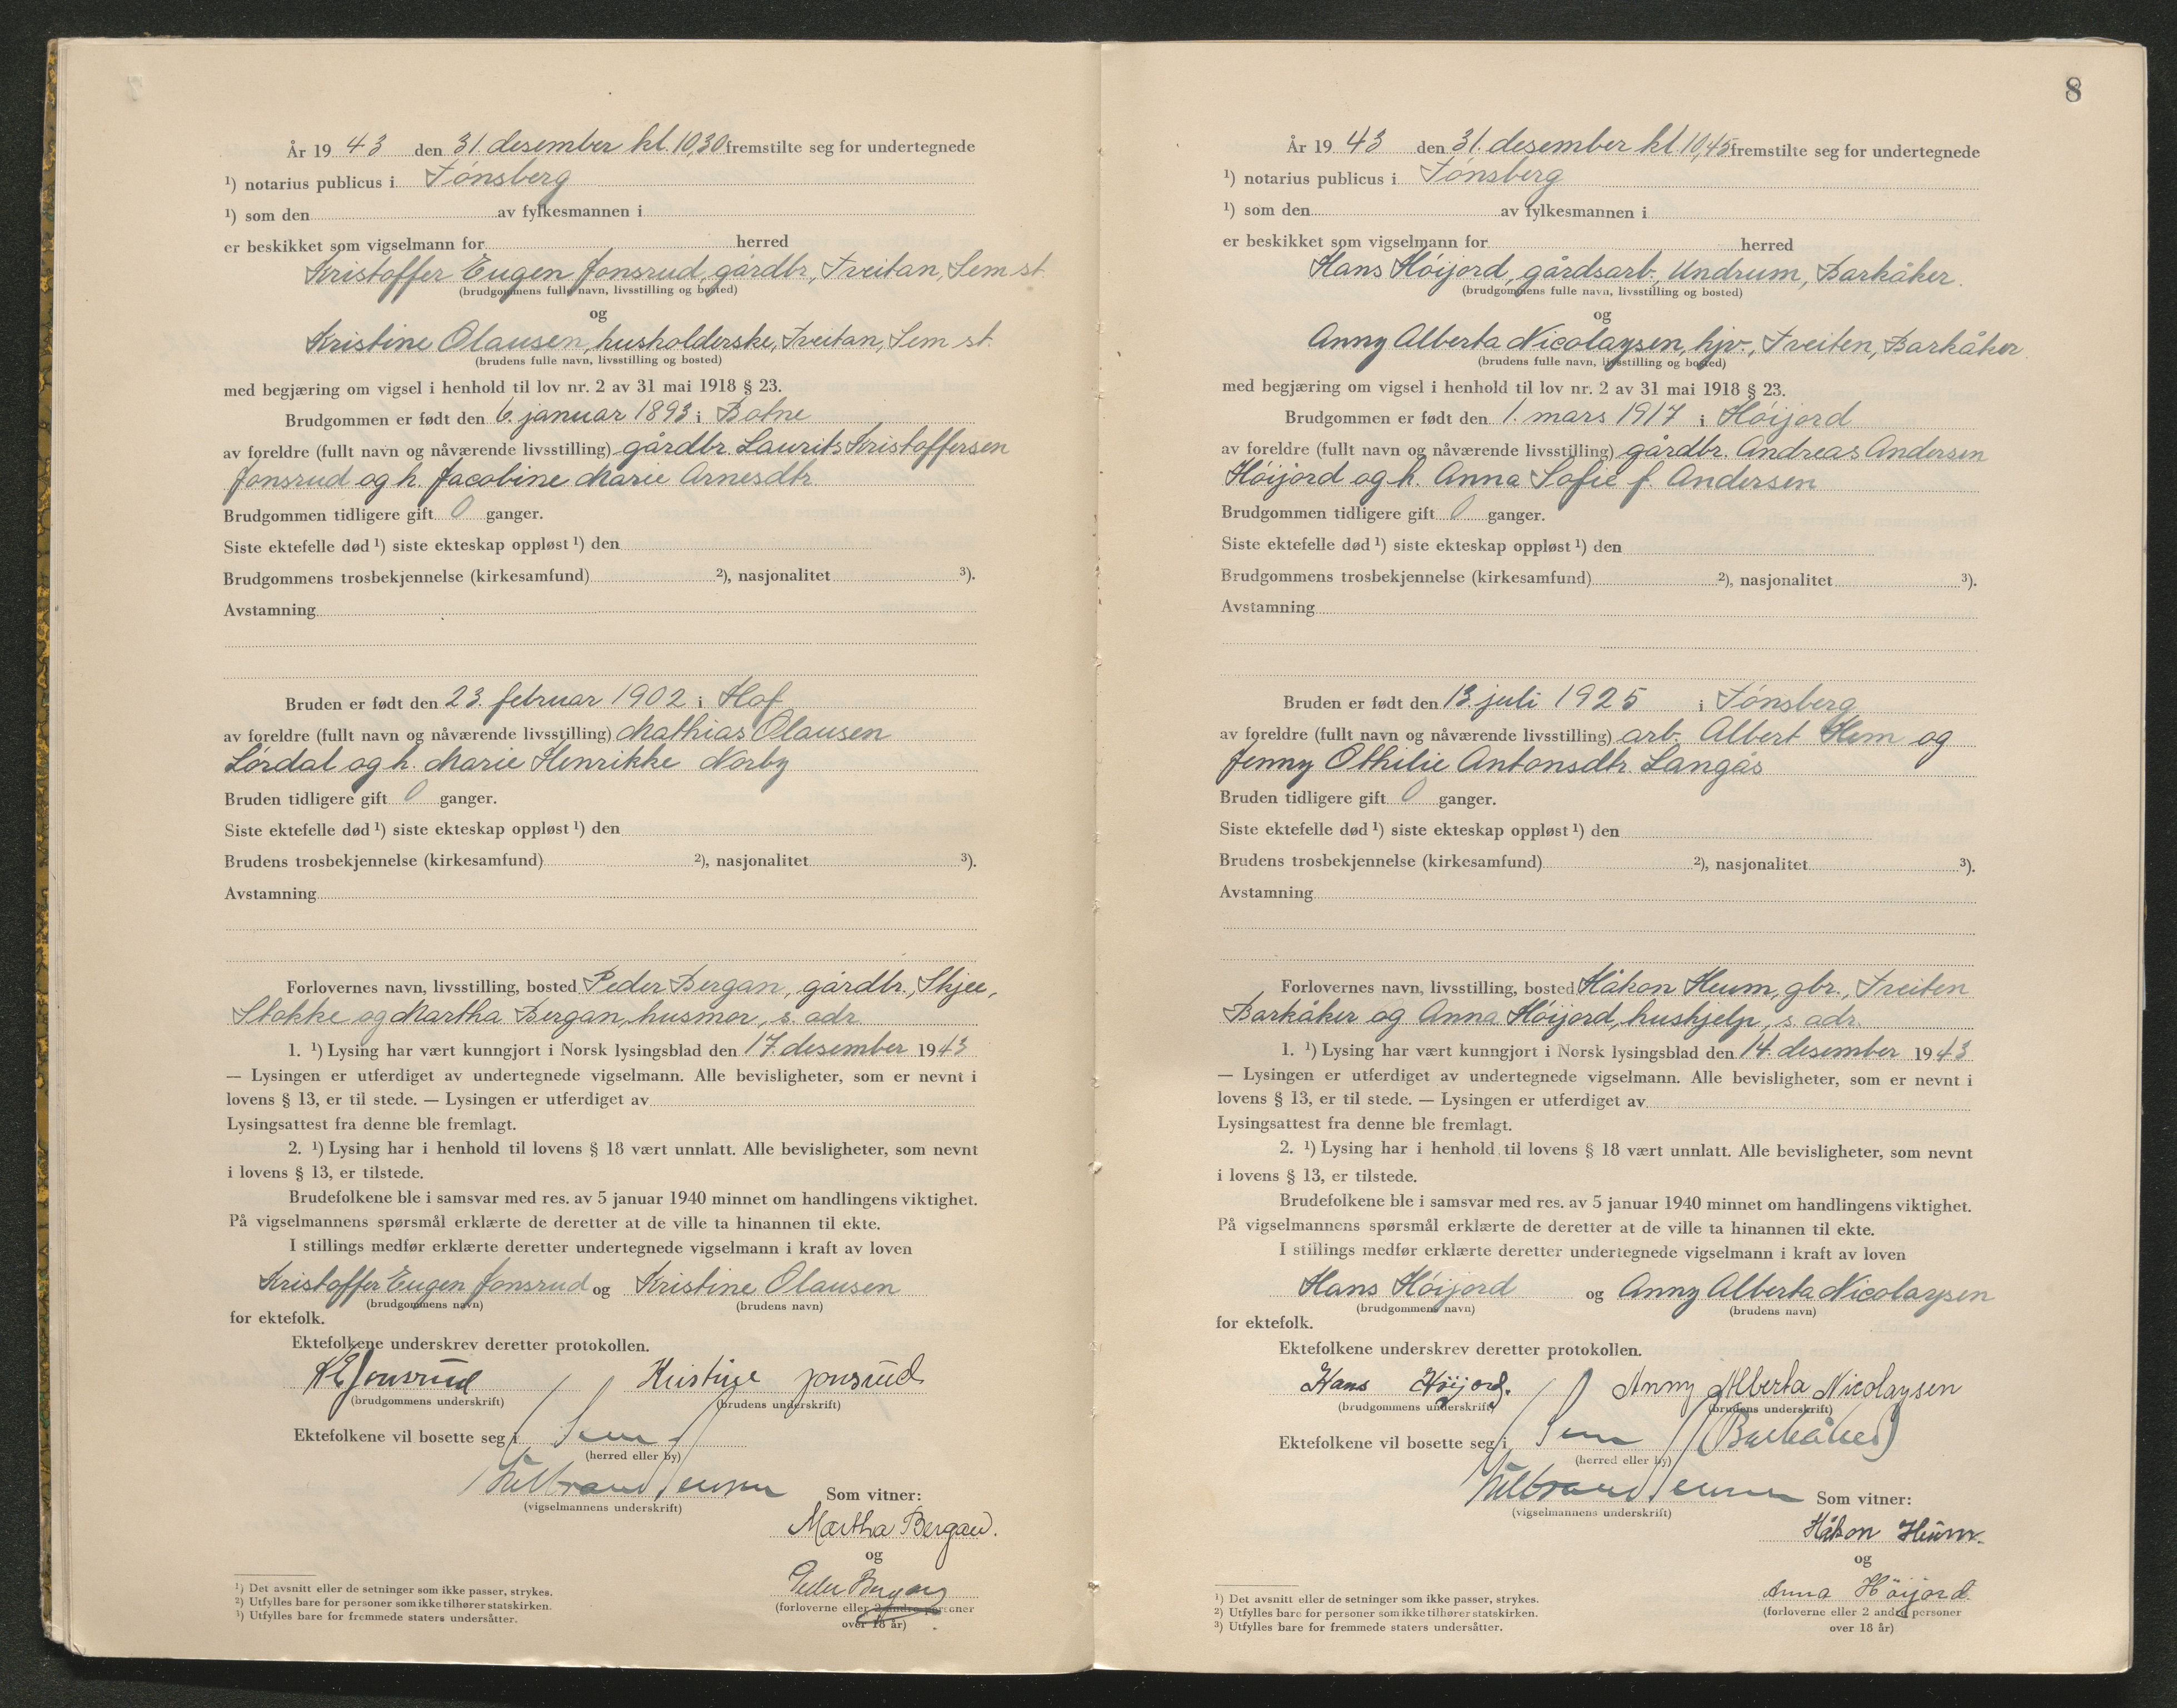 År 19 43 den 31 desember kl. 10,30 fremstilte seg for undertegnede
¹) notarius publicus i Tönsberg
¹) som den av fylkesmannen i
er beskikket som vigselmann for herred
Kristoffer Eugen Jonsrud, gårdbr, Treitan, Sem st.
(brudgommens fulle navn, livsstilling og bosted)
og
Kristine Olausen, husholderske, Treitan, Sem st.
(brudens fulle navn, livsstilling og bosted)
med begjæring om vigsel i henhold til lov nr. 2 av 31 mai 1918 § 23.
Brudgommen er født den 6. januar 1893 i Botne
av foreldre (fullt navn og nåværende livsstilling) gårdbr. Laurits Kristoffersen
Jonsrud og h. Jacobine Marie Arnesdtr.
Brudgommen tidligere gift 0 ganger.
Siste ektefelle død ¹) siste ekteskap oppløst ¹) den
Brudgommens trosbekjennelse (kirkesamfund) ²), nasjonalitet ³).
Avstamning
Bruden er født den 23. februar 1902 i Hof
av foreldre (fullt navn og nåværende livsstilling) Mathias Olausen
Lördal og h. Marie Henrikke Norby
Bruden tidligere gift 0 ganger.
Siste ektefelle død ¹) siste ekteskap oppløst ¹) den
Brudens trosbekjennelse (kirkesamfund) ²), nasjonalitet ³).
Avstamning
Forlovernes navn, livsstilling, bosted Peder Bergan, gårdbr., Skjee,
Stokke og Martha Bergan, husmor, s. adr.
1. ¹) Lysing har vært kunngjort i Norsk lysingsblad den 17. desember 1943
— Lysingen er utferdiget av undertegnede vigselmann. Alle bevisligheter, som er nevnt i
lovens § 13, er til stede. — Lysingen er utferdiget av
Lysingsattest fra denne ble fremlagt.
2. ¹) Lysing har i henhold til lovens § 18 vært unnlatt. Alle bevisligheter, som nevnt
i lovens § 13, er tilstede.
Brudefolkene ble i samsvar med res. av 5 januar 1940 minnet om handlingens viktighet.
På vigselmannens spørsmål erklærte de deretter at de ville ta hinannen til ekte.
I stillings medfør erklærte deretter undertegnede vigselmann i kraft av loven
Kristoffer Eugen Jonsrud og Kristine Olausen
(brudgommens navn) (brudens navn)
for ektefolk.
Ektefolkene underskrev deretter protokollen.
K E Jonsrud Kristine Jonsrud
(brudgommens underskrift) (brudens underskrift)
Ektefolkene vil bosette seg i Sem
(herred eller by)
(vigselmannens underskrift) Som vitner:
Martha Bergan.
og
Peder Bergan
(forloverne eller 2 andre personer
over 18 år)
¹) Det avsnitt eller de setninger som ikke passer, strykes.
²) Utfylles bare for personer som ikke tilhører statskirken.
³) Utfylles bare for fremmede staters undersåtter.
8
År 19 43 den 31. desember kl. 10,45 fremstilte seg for undertegnede
¹) notarius publicus i Tönsberg
¹) som den av fylkesmannen i
er beskikket som vigselmann for herred
Hans Höijord, gårdsarb., Undrum, Barkåker.
(brudgommens fulle navn, livsstilling og bosted)
og
Anny Alberta Nicolaysen, hjv., Treiten, Barkåker
(brudens fulle navn, livsstilling og bosted)
med begjæring om vigsel i henhold til lov nr. 2 av 31 mai 1918 § 23.
Brudgommen er født den 1. mars 1917 i Höijord
av foreldre (fullt navn og nåværende livsstilling) gårdbr. Andreas Andersen
Höijord og h. Anna Sofie f. Andersen
Brudgommen tidligere gift 0 ganger.
Siste ektefelle død ¹) siste ekteskap oppløst ¹) den
Brudgommens trosbekjennelse (kirkesamfund) ²), nasjonalitet ³).
Avstamning
Bruden er født den 13. juli 1925 i Tönsberg
av foreldre (fullt navn og nåværende livsstilling) arb. Albert Hem og
Jenny Othilie Antonsdtr. Langås
Bruden tidligere gift 0 ganger.
Siste ektefelle død ¹) siste ekteskap oppløst ¹) den
Brudens trosbekjennelse (kirkesamfund) ²), nasjonalitet ³).
Avstamning
Forlovernes navn, livsstilling, bosted Håkon Heum, gbr., Treiten
Barkåker og Anna Höijord, hushjelp, s. adr.
1. ¹) Lysing har vært kunngjort i Norsk lysingsblad den 14. desember 1943
— Lysingen er utferdiget av undertegnede vigselmann. Alle bevisligheter, som er nevnt i
lovens § 13, er til stede. — Lysingen er utferdiget av
Lysingsattest fra denne ble fremlagt.
2. ¹) Lysing har i henhold til lovens § 18 vært unnlatt. Alle bevisligheter, som nevnt
i lovens § 13, er tilstede.
Brudefolkene ble i samsvar med res. av 5 januar 1940 minnet om handlingens viktighet.
På vigselmannens spørsmål erklærte de deretter at de ville ta hinannen til ekte.
I stillings medfør erklærte deretter undertegnede vigselmann i kraft av loven
Hans Höijord og Anny Alberta Nicolaysen
(brudgommens navn) (brudens navn)
for ektefolk.
Ektefolkene underskrev deretter protokollen.
Hans Höijord. Anny Alberta Nicolaysen
(brudgommens underskrift) (brudens underskrift)
Ektefolkene vil bosette seg i Sem (Barkåker)
(herred eller by)
(vigselmannens underskrift) Som vitner:
Håkon Heum.
og
Anna Höijord.
(forloverne eller 2 andre personer
over 18 år)
¹) Det avsnitt eller de setninger som ikke passer, strykes.
²) Utfylles bare for personer som ikke tilhører statskirken.
³) Utfylles bare for fremmede staters undersåtter.